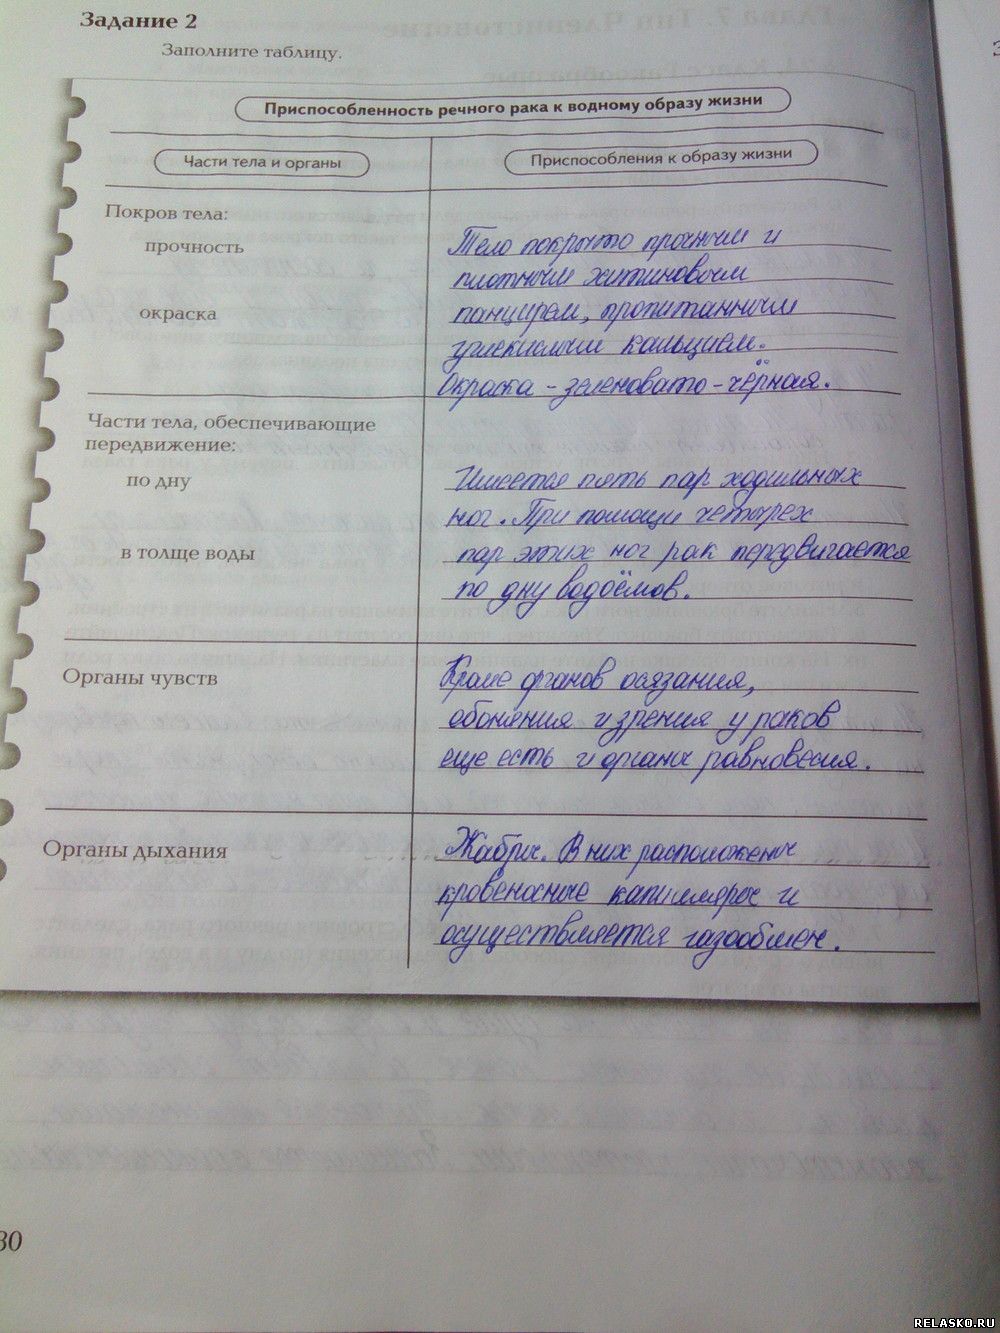 Задание 2
Заполните таблицу.
Приспособленность речного рака к водному образу жизни
Части тела и органы
Приспособления к образу жизни
Покров тела:
прочность
окраска
Тело покрыто прочным и
плотным хитиновым
панцирем, пропитанным
углекислым кальцием.
Окраска - зеленовато - чёрная.
Части тела, обеспечивающие
передвижение:
по дну
в толще воды
Имеется пять пар ходильных
ног. При помощи четырех
пар этих ног рак передвигается
по дну водоёмов.
Органы чувств
Кроме органов осязания,
обоняния и зрения у раков
еще есть и органы равновесия.
Органы дыхания
Жабры. В них расположены
кровеносные капилляры и
осуществляется газообмен.
80
RELASKO.RU